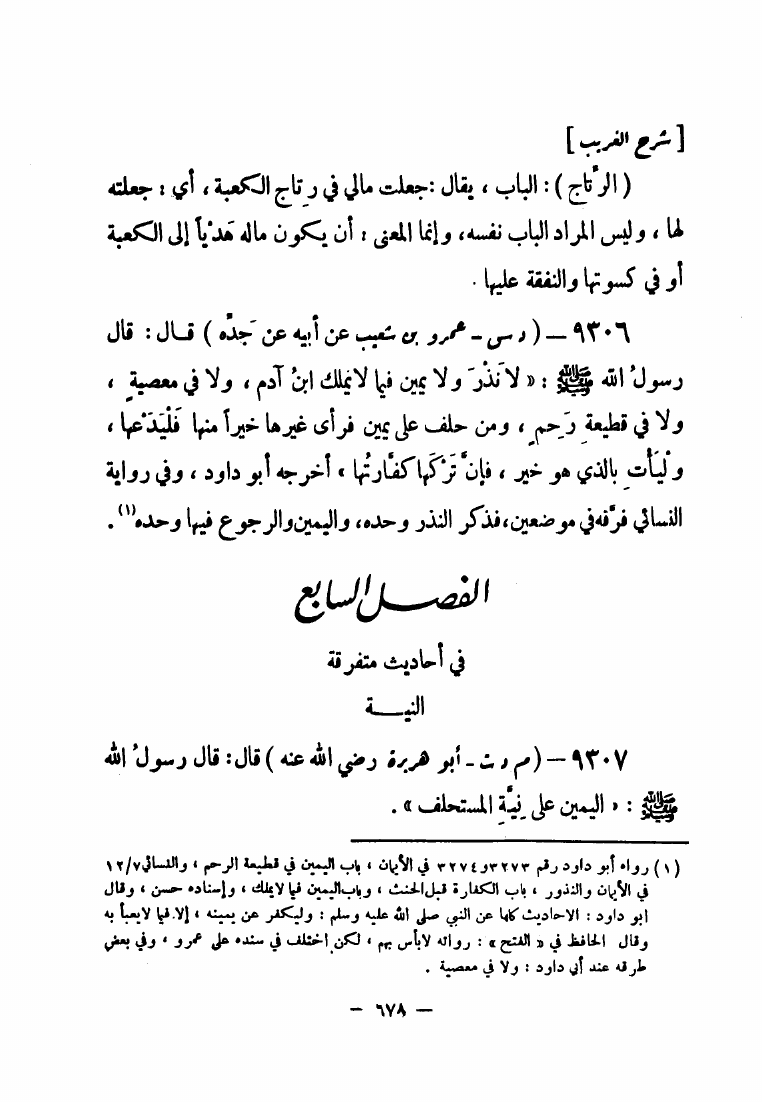 [ شرح الغريب ]
( الرِّتاج ) : الباب ، يقال : جعلت مالي في رِتاج الكعبة ، أي : جعلته
لها ، وليس المراد الباب نفسه، وإنما المعنى : أن يكون ماله هَدْياً إلى الكعبة
أو في كسوتها والنفقة عليها .
٩٣٠٦ – ( د س - عمرو بن شعيب عن أبيه عن جَدِّه ) قـال : قال
رسولُ الله ﷺ : « لا نَذْرَ ولا يمين فيما لا يملك ابنُ آدم ، ولا في معصيةٍ ،
ولا في قطيعةِ رَحِمٍ ، ومن حلف على يمين فرأى غيرها خيراً منها فَلْيَدَعْها ،
ولْيَأْتِ بالذي هو خير ، فإنَّ تَرْكَها كفَّارتُها » أخرجه أبو داود ، وفي رواية
النسائي فرَّقه في موضعين، فذكر النذر وحده، واليمين والرجوع فيها وحده(١).
الفصل السابع
في أحاديث متفرقة
النيــة
٩٣٠٧ – ( م د ت - أبو هريرة رضي الله عنه ) قال : قال رسولُ الله
ﷺ : « اليمين على نِيَّةِ المستحلف » .
(١) رواه أبو داود رقم ٣٢٧٣ و ٣٢٧٤ في الأيمان ، باب اليمين في قطيعة الرحم ، والنسائي ١٢/٧
في الأيمان والنذور ، باب الكفارة قبل الحنث ، وباب اليمين فيما لا يملك ، وإسناده حسن ، وقال
ابو داود : الاحاديث كلها عن النبي صلى الله عليه وسلم : وليكفر عن يمينه ، إلا فيما لا يعبأ به
وقال الحافظ في « الفتح » : رواته لا بأس بهم ، لكن اختلف في سنده على عمرو ، وفي بعض
طرقه عند أبي داود : ولا في معصية .
– ٦٧٨ –